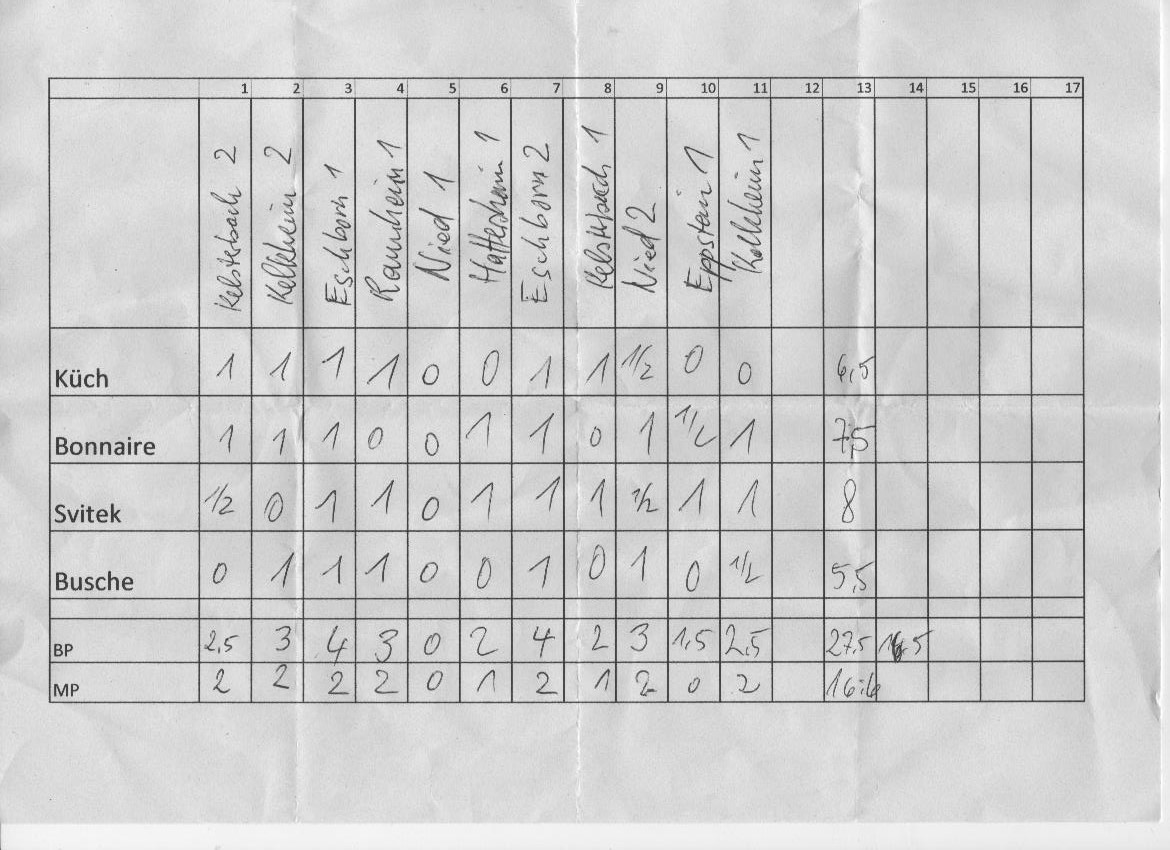 1 2 3 4 5 6 7 8 9 10 11 12 13 14 15 16 17
Kelsterbach 2 Kelkheim 2 Eschborn 1 Raunheim 1 Nied 1 Hattersheim 1 Eschborn 2 Kelsterbach 1 Nied 2 Eppstein 1 Kelkheim 1
Küch 1 1 1 1 0 0 1 1 1/2 0 0 6,5
Bonnaire 1 1 1 0 0 1 1 0 1 1/2 1 7,5
Svitek 1/2 0 1 1 0 1 1 1 1/2 1 1 8
Busche 0 1 1 1 0 0 1 0 1 0 1/2 5,5
BP 2,5 3 4 3 0 2 4 2 3 1,5 2,5 27,5 16,5
MP 2 2 2 2 0 1 2 1 2 0 2 16:6